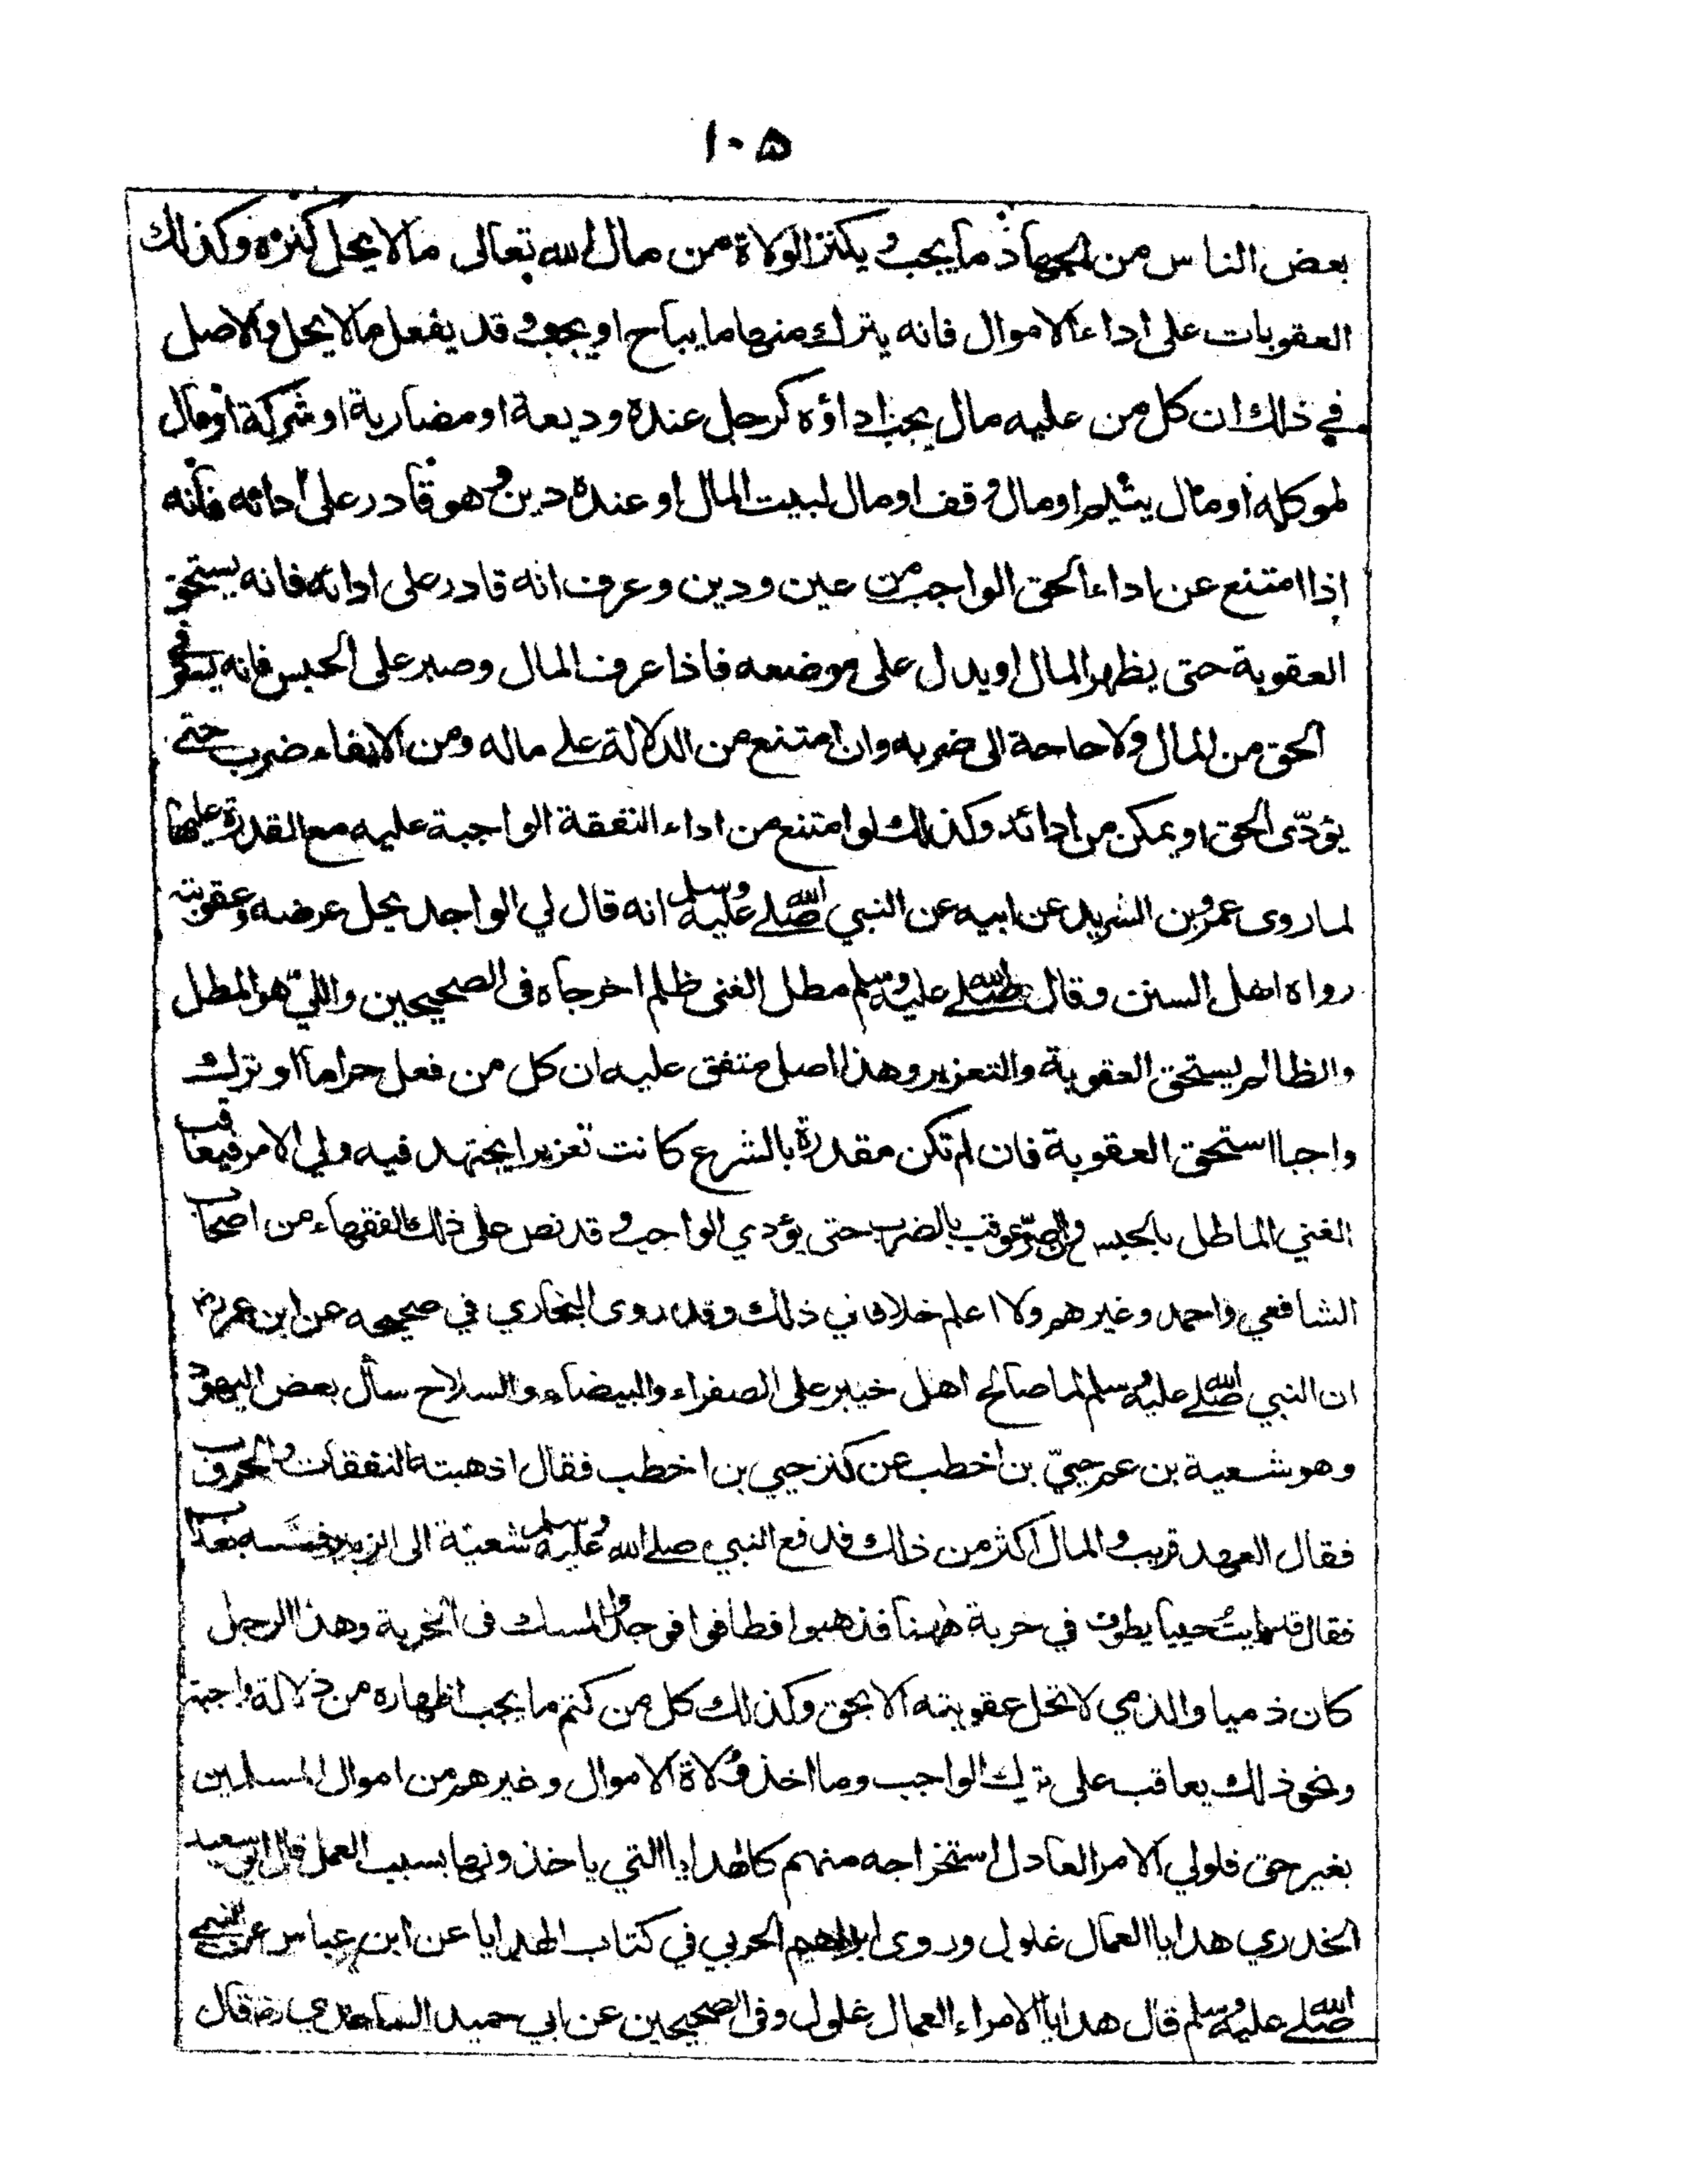 ١٠٥
بعض الناس من الجهاد ما يجب و يكتنز الولاة من مال الله تعالى مالا يحل كنزه وكذلك
العقوبات على اداء الاموال فانه يترك منها ما يباح او يجب و قد يفعل مالا يحل والاصل
في ذلك ان كل من عليه مال يجب اداؤه كرجل عنده وديعة او مضاربة او شركة او مال
لموكله او مال يتيم او مال وقف او مال لبيت المال او عنده دين و هو قادر على ادائه فانه
اذا امتنع عن اداء الحق الواجب من عين و دين و عرف انه قادر على ادائه فانه يستحق
العقوبة حتى يظهر المال او يدل على موضعه فاذا عرف المال وصبر على الحبس فانه يستوفى
الحق من المال ولا حاجة الى ضربه وان امتنع من الدلالة على ماله ومن الايفاء ضرب حتى
يؤدّى الحق او يمكن من ادائه وكذلك لو امتنع من اداء النفقة الواجبة عليه مع القدرة عليها
لما روى عمرو بن الشريد عن ابيه عن النبي صلى الله عليه وسلم انه قال لي الواجد يحل عرضه وعقوبته
رواه اهل السنن وقال صلى الله عليه وسلم مطل الغنى ظلم اخرجاه فى الصحيحين واللي هو المطل
والظالم يستحق العقوبة والتعزير وهذا اصل متفق عليه ان كل من فعل حراما او ترك
واجبا استحق العقوبة فان لم تكن مقدرة بالشرع كانت تعزيرا يجتهد فيه ولي الامر فيعاقب
الغني المماطل بالحبس فان اصر عوقب بالضرب حتى يؤدي الواجب و قد نص على ذلك الفقهاء من اصحاب
الشافعي واحمد وغيرهم ولا اعلم خلافا في ذلك وقد روى البخاري في صحيحه عن ابن عمر رض
ان النبي صلى الله عليه وسلم لما صالح اهل خيبر على الصفراء والبيضاء والسلاح سأل بعض اليهود
وهو شعية بن عم حييّ بن اخطب عن كنز حيي بن اخطب فقال اذهبته النفقات والحروب
فقال العهد قريب والمال اكثر من ذلك فدفع النبي صلى الله عليه وسلم شعية الى الزبير فمسه بعذاب
فقال قد رايتُ حييا يطوف في خربة ههنا فذهبوا فطافوا فوجدوا المسك فى الخربة وهذا الرجل
كان ذميا والذمي لا تحل عقوبته الا بحق وكذلك كل من كتم ما يجب اظهاره من دلالة واجبة
ونحو ذلك يعاقب على ترك الواجب وما اخذ ولاة الاموال وغيرهم من اموال المسلمين
بغير حق فلولي الامر العادل استخراجه منهم كالهدايا التي ياخذونها بسبب العمل قال ابو سعيد
الخدري هدايا العمال غلول وروى ابراهيم الحربي في كتاب الهدايا عن ابن عباس عن النبي
صلى الله عليه وسلم قال هدايا الامراء العمال غلول وفى الصحيحين عن ابي حميد الساعدي رضـ قال